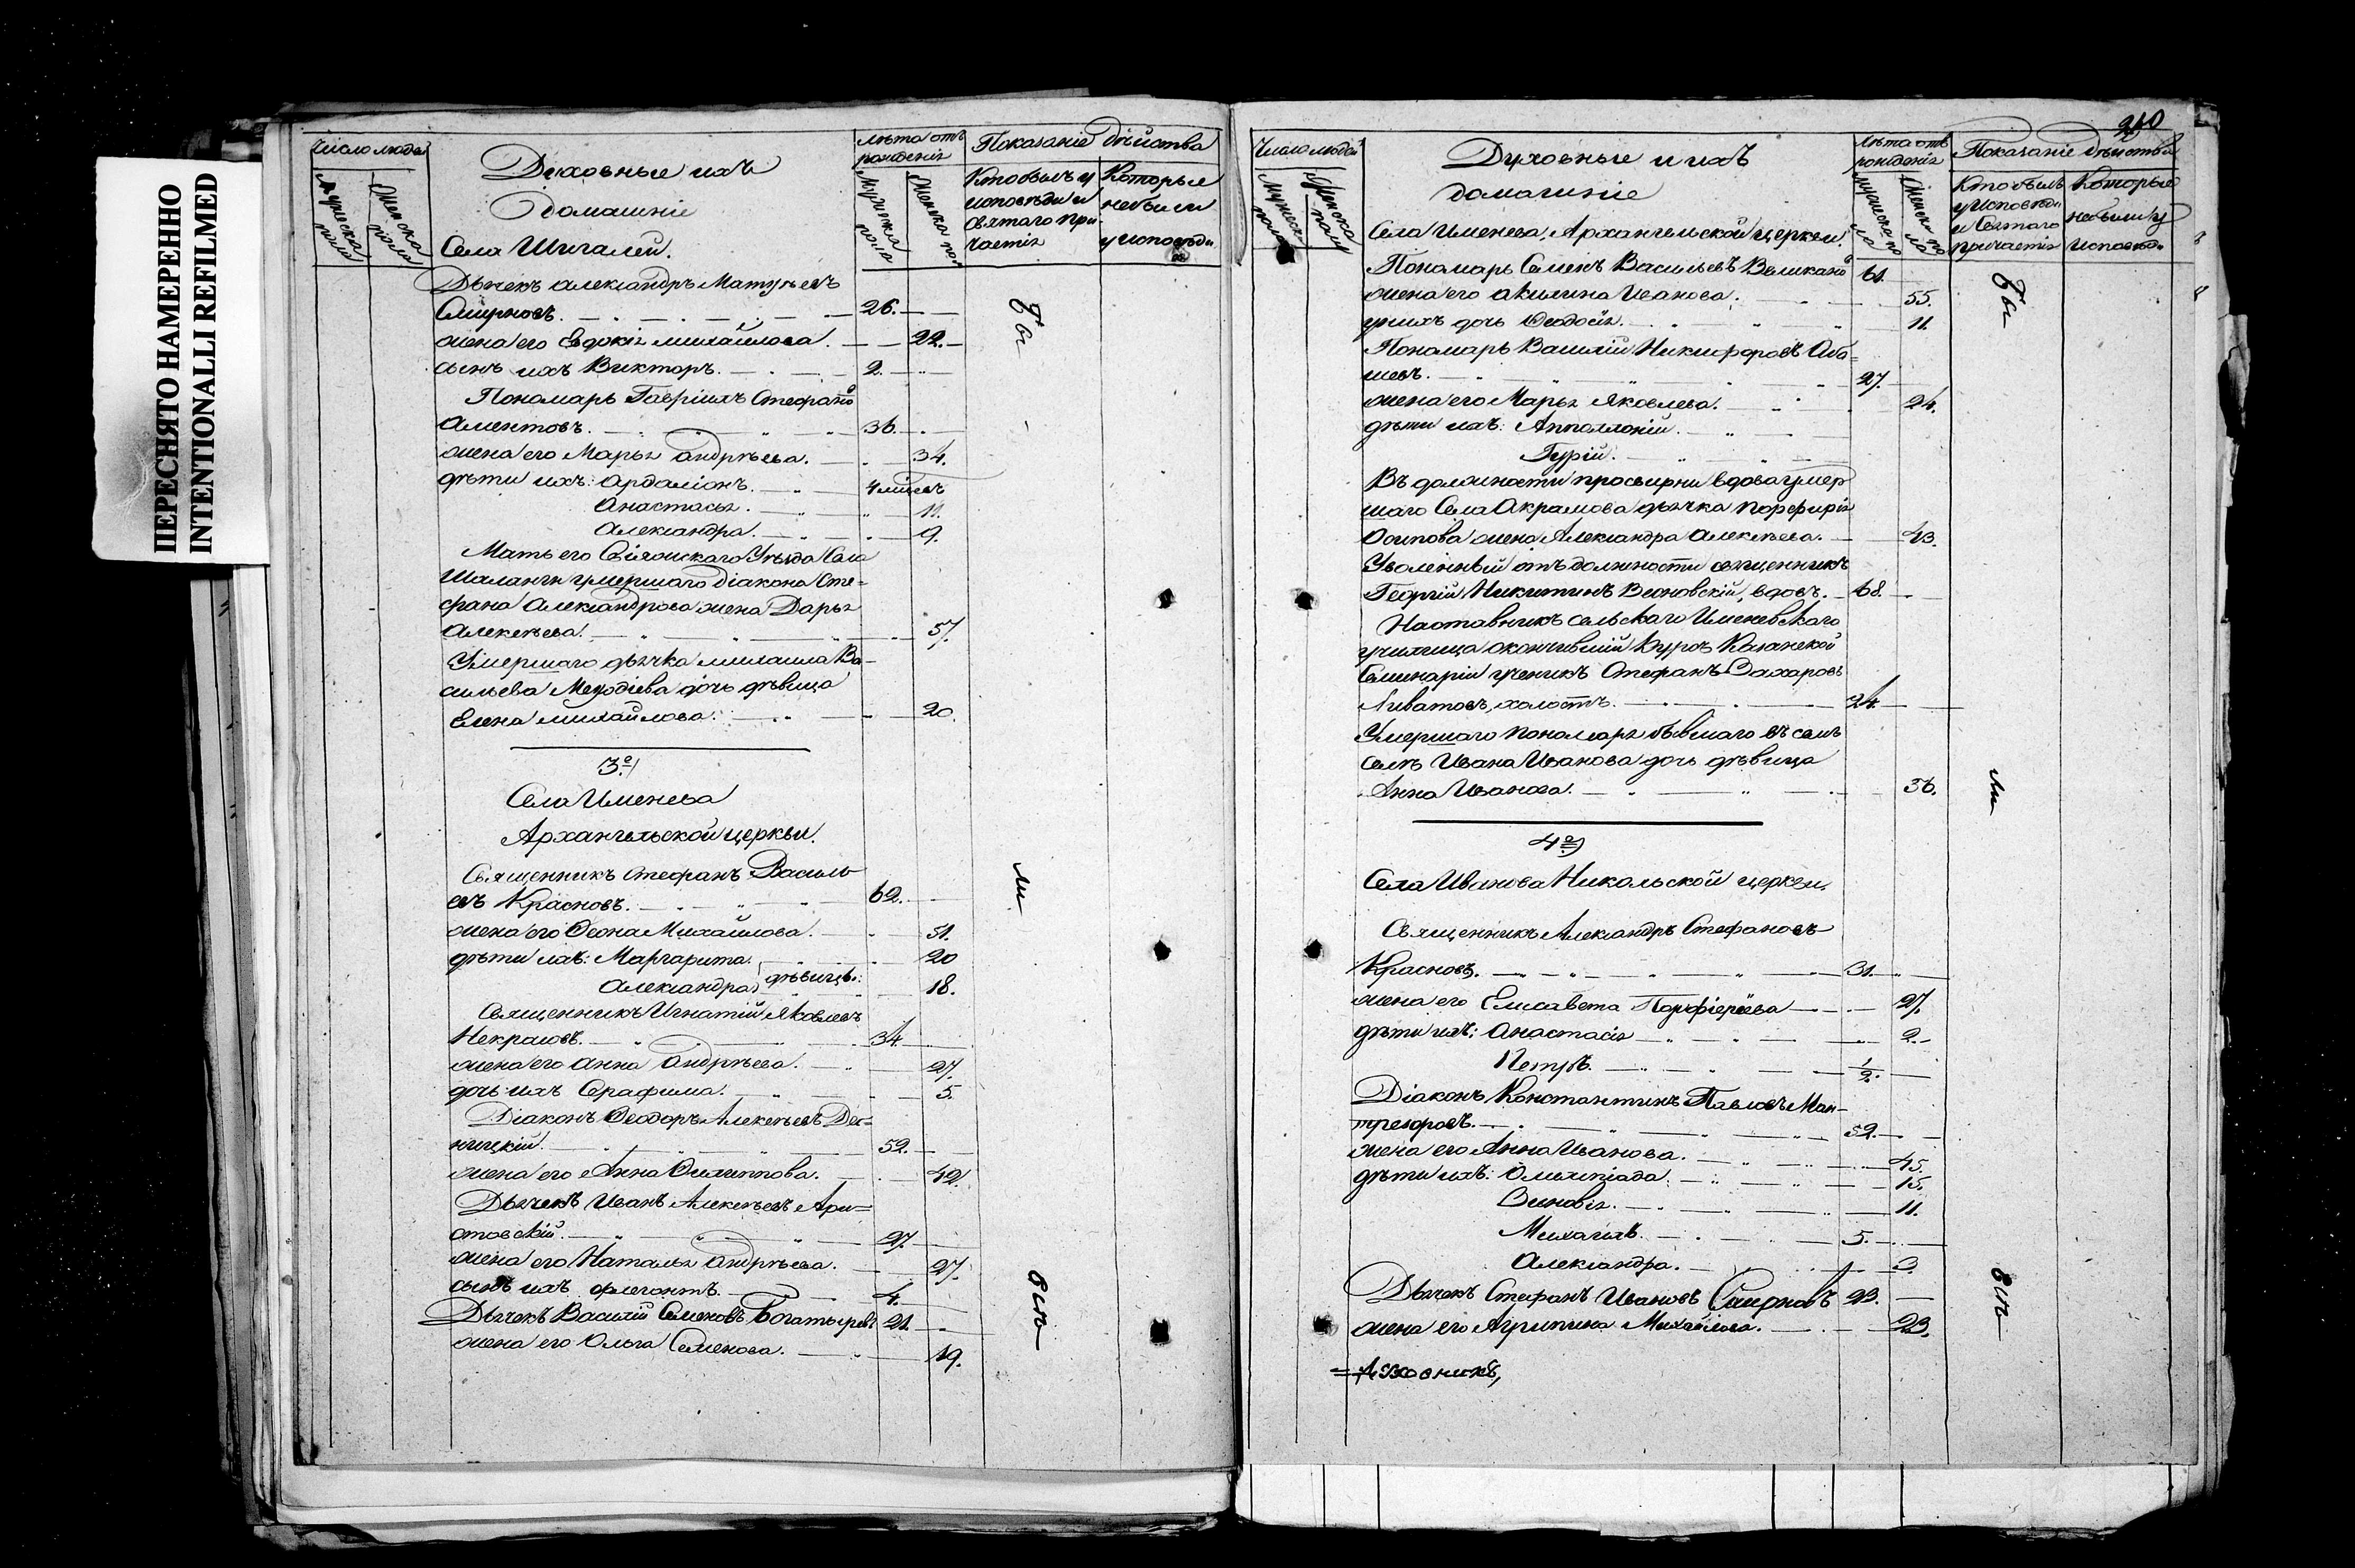 ПЕРЕСНЯТО НАМЕРЕННО
INTENTIONALLI REFILMED
Число людей
Мужеска пола
Женска пола
Духовные ихъ
Домашніе
Села Шигалей.
лѣта отъ рожденія
Мужеска пола
Женска пол.
Показаніе дѣйства
Кто былъ у
исповѣди и
Святаго При-
частія
Которые
небыли
у исповѣди
Дьячекъ Александръ Матуѣевъ
Смирновъ. 26.
жена его Евдокія Михайлова. 22.
сынъ ихъ Викторъ. 2.
Пономарь Гавріилъ Стефано
Аментовъ. 36.
жена его Марья Андрѣева. 34.
дѣти ихъ: Ардаліонъ. 4 мѣсяц
Анастасья. 11.
Александра. 9.
Мать его Свіяжскаго Уѣзда Села
Шаланги умершаго діакона Сте=
фана Александрова жена Дарья
Алексѣева. 57.
Умершаго дьячка Михаила Ва-
сильева Меѳодіева дочь дѣвица
Елена Михайлова. 20.
3.е)
Села Именева
Архангельской церкви.
Священникъ Стефанъ Василь
евъ Красновъ. 62.
жена его Ѳеона Михайлова. 51.
дѣти ихъ: Маргарита. 20
Александра. дѣвицы. 18.
Священникъ Игнатій Яковлевъ
Некрасовъ. 34.
жена его Анна Андрѣева. 27.
дочь ихъ Серафима. 5.
Діаконъ Ѳеодоръ Алексѣевъ Дес=
ницкій. 52.
жена его Анна Филиппова. 42.
Дьячекъ Иванъ Алексѣевъ Ари=
стовскій. 27.
жена его Наталья Андрѣева. 27.
сынъ ихъ Флегонтъ. 4.
Дьячекъ Василій Семеновъ Богатыревъ 21.
жена его Ольга Семенова. 19.
бы
ли
всѣ
210
Число людей
Мужеск. пола
Женска пола
Духовные и ихъ
домашніе
Села Именева, Архангельской церкви.
лѣта отъ рожденія
Мужеска по ла
Женска по ла
Показаніе дѣйства
Кто былъ
у Исповѣди
и Святаго
причастія
Которые
небыли у
Исповѣди
Пономарь Семенъ Васильевъ Великано 61.
жена его Акилина Иванова. 55.
у нихъ дочь Ѳеодосія. 11.
Пономарь Василій Никифоровъ Аба=
шевъ. 27.
жена его Марья Яковлева. 24.
дѣти ихъ: Апполлоній.
Гурій.
Въ должности просвирни вдова умер
шаго Села Акрамова дьячка Порфирія
Осипова жена Александра Алексѣева. 43.
Уволенный отъ должности священникъ
Георгій Никитинъ Веоновскій, вдовъ. 68.
Наставникъ сельскаго Именевскаго
училища окончившій Курсъ Казанской
Семинаріи ученикъ Стефанъ Захаровъ
Ливатовъ, холостъ. 24.
Умершаго Пономаря бывшаго въ семъ
селѣ Ивана Иванова дочь дѣвица
Анна Иванова. 36.
4.е)
Села Иванова Никольской церкви.
Священникъ Александръ Стефановъ
Красновъ. 31.
жена его Елисавета Порфіерьева 27.
дѣти ихъ: Анастасія 2.
Петръ. 1/2.
Діаконъ Константинъ Павловъ Ман-
треоровъ. 52.
жена его Анна Иванова. 45.
дѣти ихъ: Олимпіада. 15.
Зиновія. 11.
Михаилъ. 5.
Александра. 3.
Дьячекъ Стефанъ Ивановъ Смирновъ 23.
жена его Агрипина Михайлова. 23.
=духовникъ,
бы
ли
всѣ